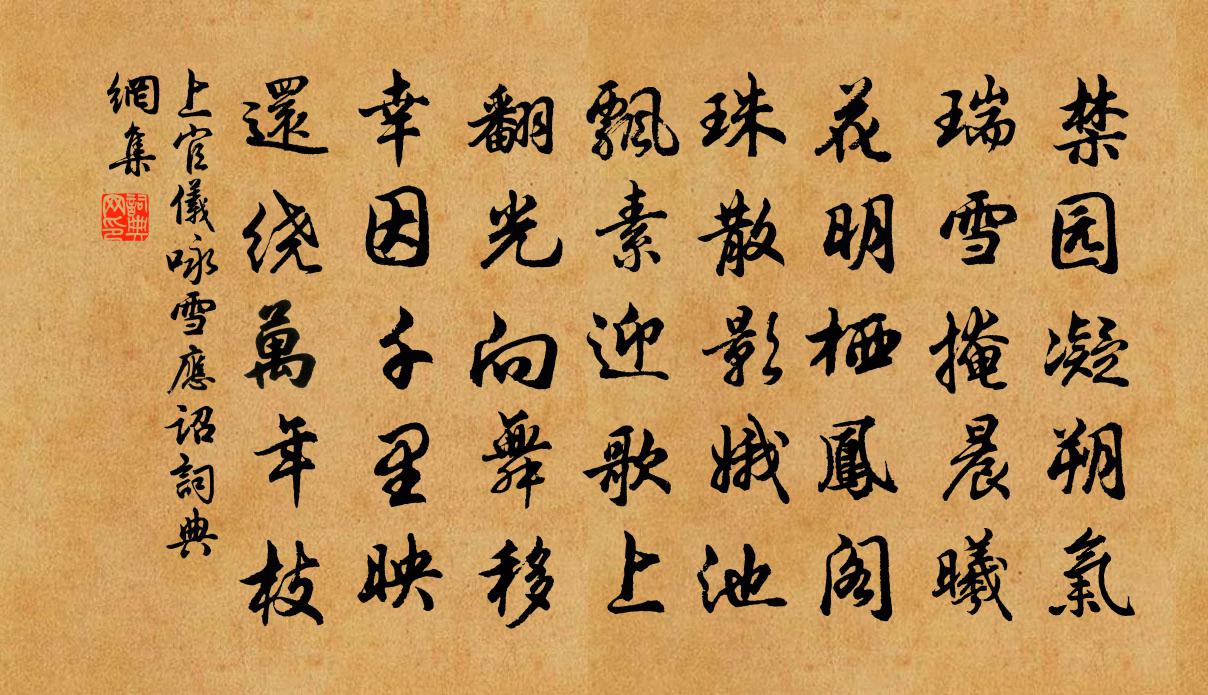 禁园凝朔氣
瑞雪掩晨曦
花明栖鳳阁
珠散影娥池
飄素迎歌上
翻光向舞移
幸因千里映
還绕萬年枝
上官儀咏雪應詔詞典
網集
詞典网印